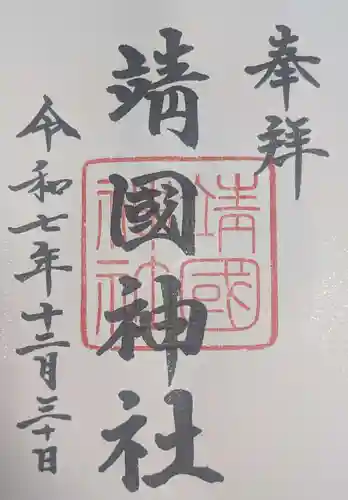 奉拝
靖國神社
靖國神社
令和七年十二月三十日